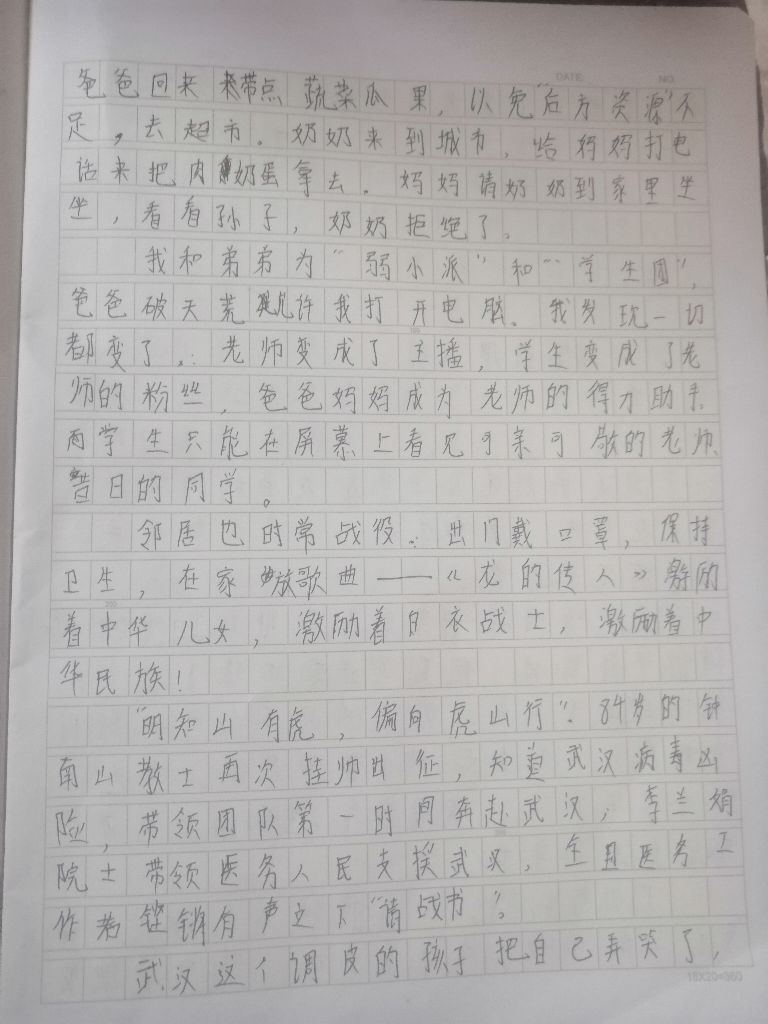 DATE: NO.
爸爸回来来带点蔬菜瓜果，以免"后方资源"不
足，去超市。奶奶来到城市，给妈妈打电
话来把肉奶蛋拿去。妈妈请奶奶到家里坐
坐，看看孙子，奶奶拒绝了。
我和弟弟为"弱小派"和"学生团"，
爸爸破天荒允许我打开电脑。我发现一切
都变了：老师变成了主播，学生变成了老
师的粉丝，爸爸妈妈成为老师的得力助手。
而学生只能在屏幕上看见可亲可敬的老师、
昔日的同学。
邻居也时常战役：出门戴口罩，保持
卫生，在家放歌曲——《龙的传人》激励
着中华儿女，激励着白衣战士，激励着中
华民族！
"明知山有虎，偏向虎山行"。84岁的钟
南山教士再次挂帅出征，知道武汉病毒凶
险，带领团队第一时间奔赴武汉；李兰娟
院士带领医务人民支援武汉，全国医务工
作者铿锵有声立下"请战书"。
武汉这个调皮的孩子把自己弄哭了，
18X20=360